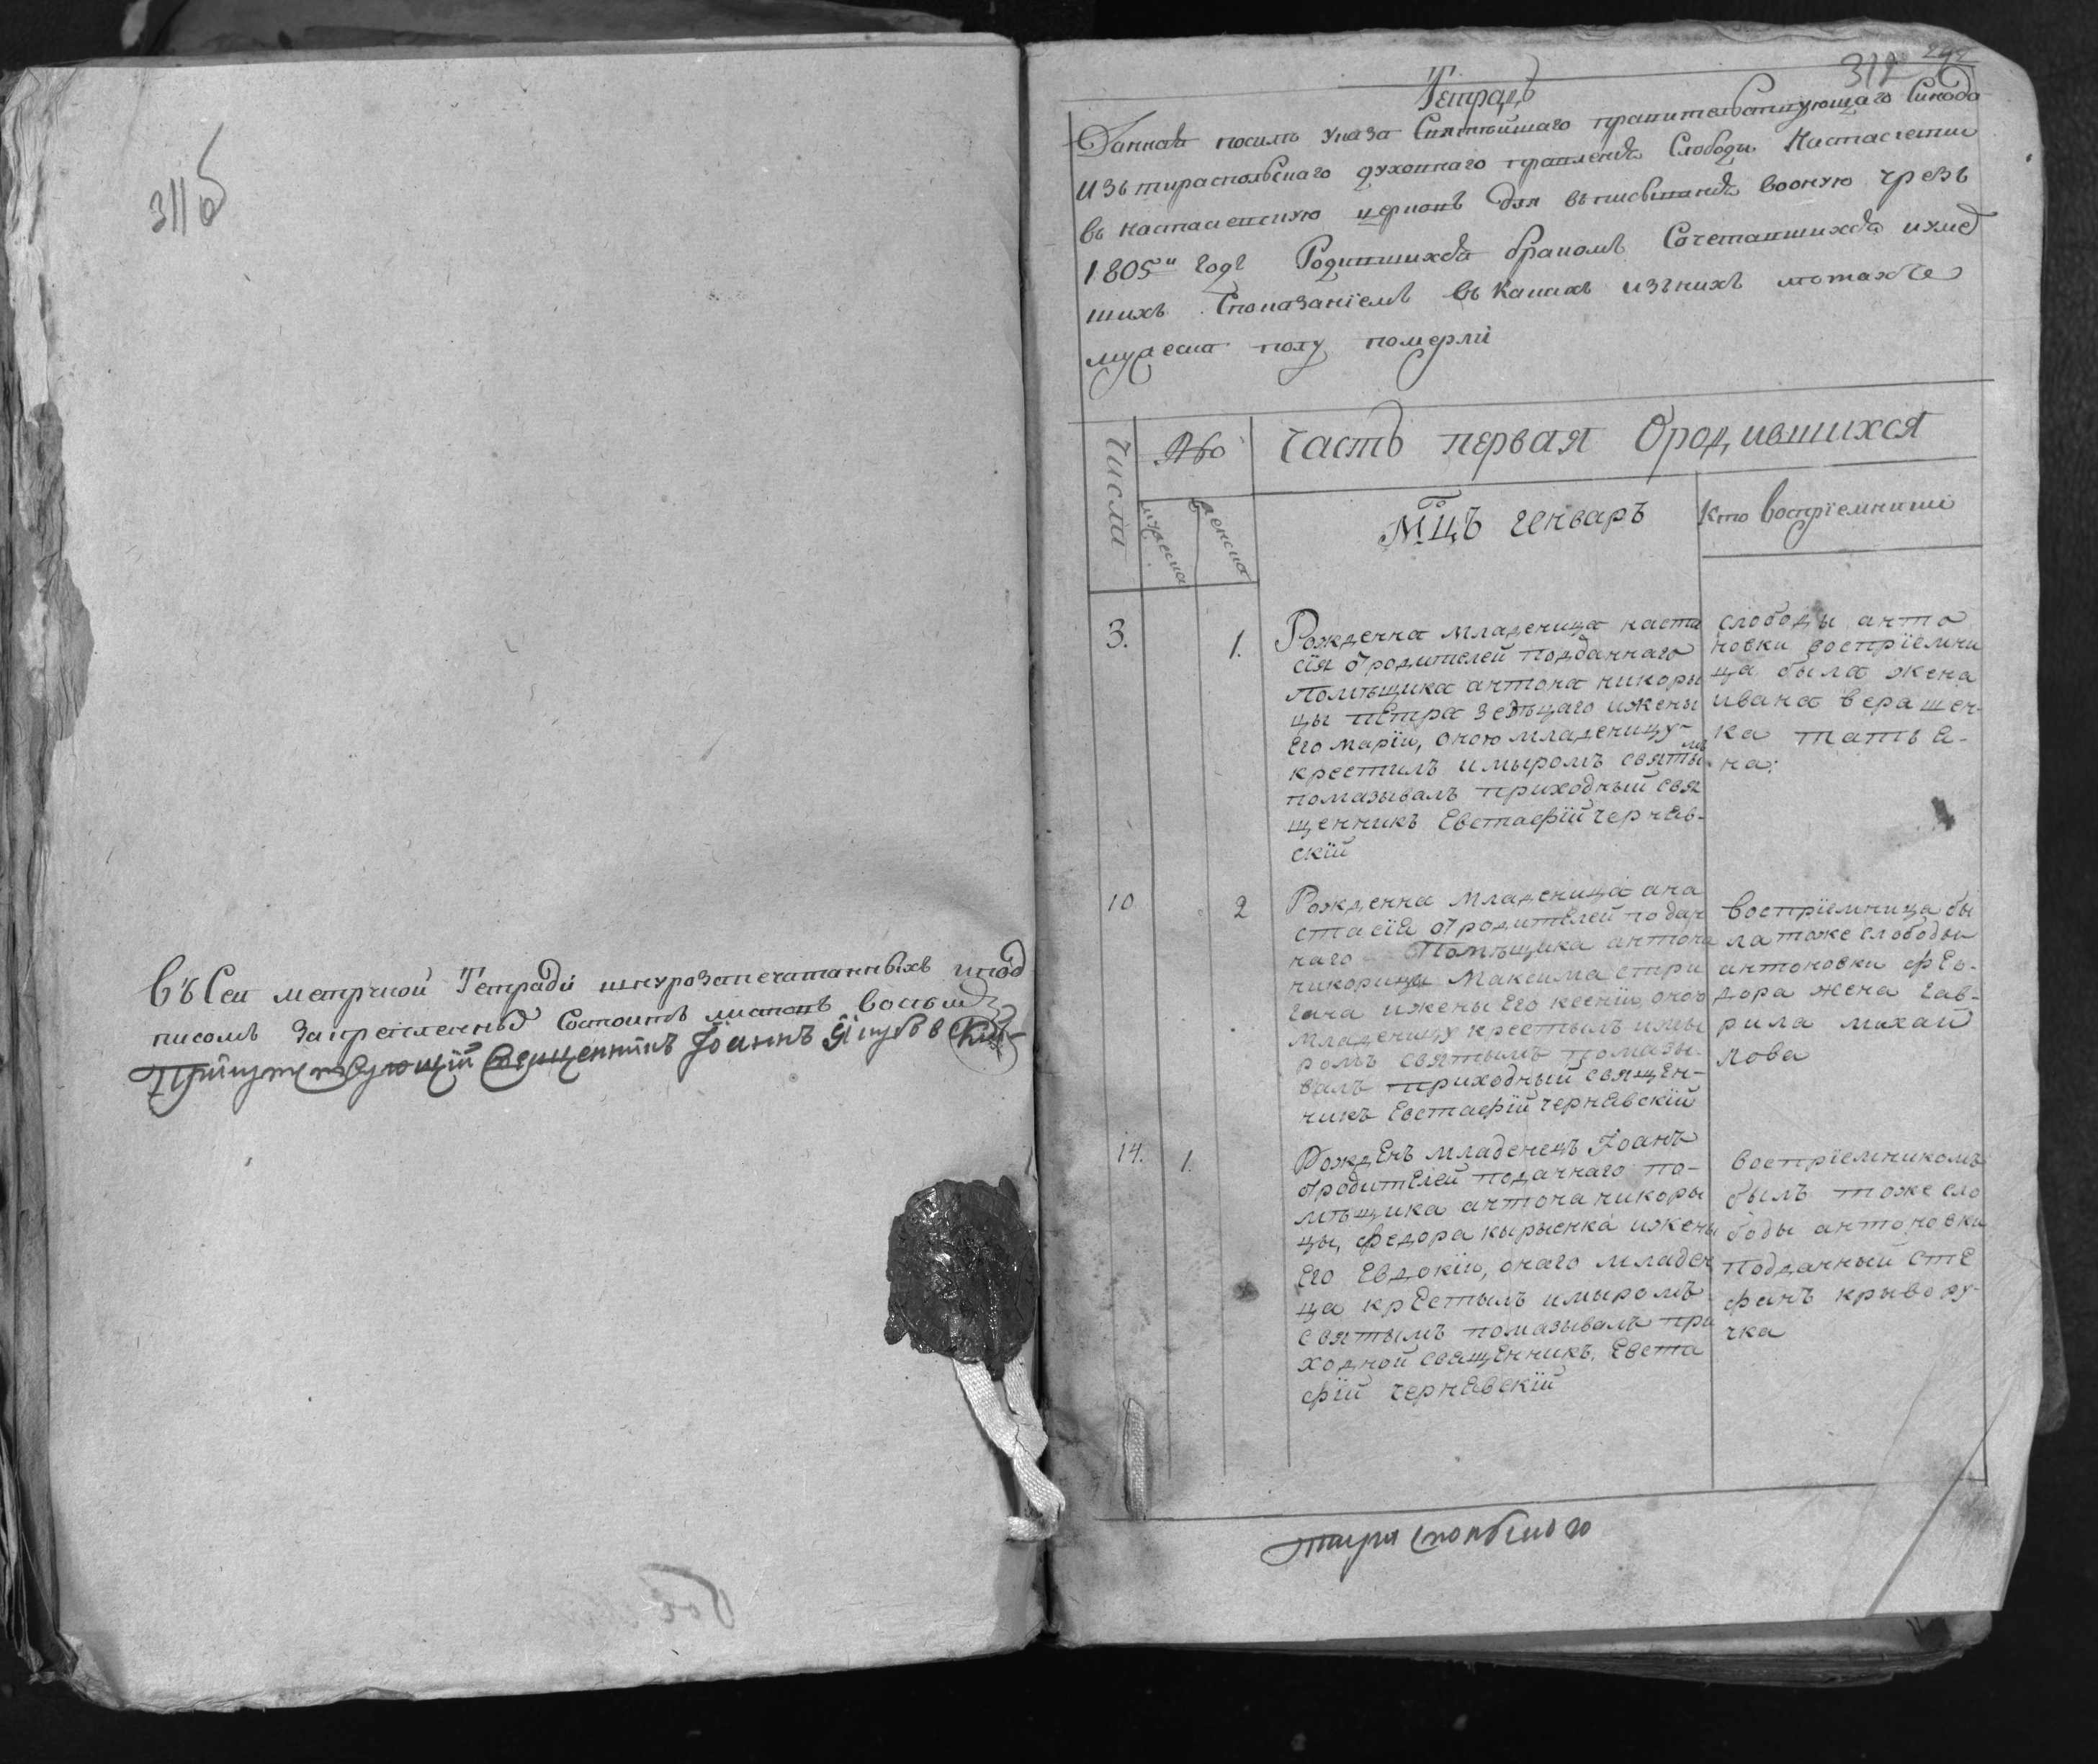 311б
Въ Сеи метричной Тетради шнурозапечатанныхъ ипод
писомъ Закрепленныхъ Состоитъ листовъ восемь
Присутствующій Священникъ Іоаннъ
312 292
Тетрадь
Данная посилѣ указа Святѣйшаго правительствующаго Синода
Изъ тираспольскаго духовнаго правленія Слободы
въ церковь для вписыванія вооную чрезъ
1805й годъ Родившихся бракомъ Сочетавшихся иумер
шихъ Споказаніемъ въ какихъ изънихъ лѣтахъ и
мужеска полу померли
Числа
Часть первая Ородившихся
мужеска
женска
Мцъ генваръ
Кто воспріемники
3.
1.
Рожденна младеница наста
сія ѿродителей подданнаго
помѣщика антона никоры
цы петра ижены
Его маріи, оною младеницу
крестилъ имыромъ святымъ
помазывалъ приходный свя
щенникъ Евстафій черняв-
скій
слободы анто
новки воспріемни
ца была жена
ивана верещен-
ка татья-
на:
10
2
Рожденна младеница ана
стасія ѿродителей подан
наго Помѣщика антона
никорицы Максима стри
гача ижены Его ксеніи, оною
младеницу крестылъ имы
ромъ святымъ помазы-
валъ приходный священ-
никъ Евстафій чернявскій
воспріемница бы
ла тоже слободы
антоновки фео-
дора жена гав-
рила михаи
лова
14.
1.
Рожденъ младенецъ Іоанъ
ѿродителей поданнаго по-
мѣщика антона никоры
цы, федора кырыенка ижены
Его Евдокіи, онаго младен
ца крестылъ имыромъ
святымъ помазывалъ при
ходной священникъ Евста
фій чернявскій
воспріемникомъ
былъ тоже сло
боды антоновки
подданный сте
фанъ крывору-
чка
тираспольскаго